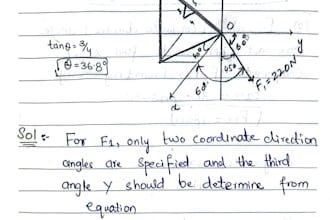 O
y
60°
tanθ = 3/4
θ = 36.8°
45°
F₁ = 220N
60°
x
Sol :- For F₁, only two coordinate direction
angles are specified and the third
angle γ should be determine from
equation